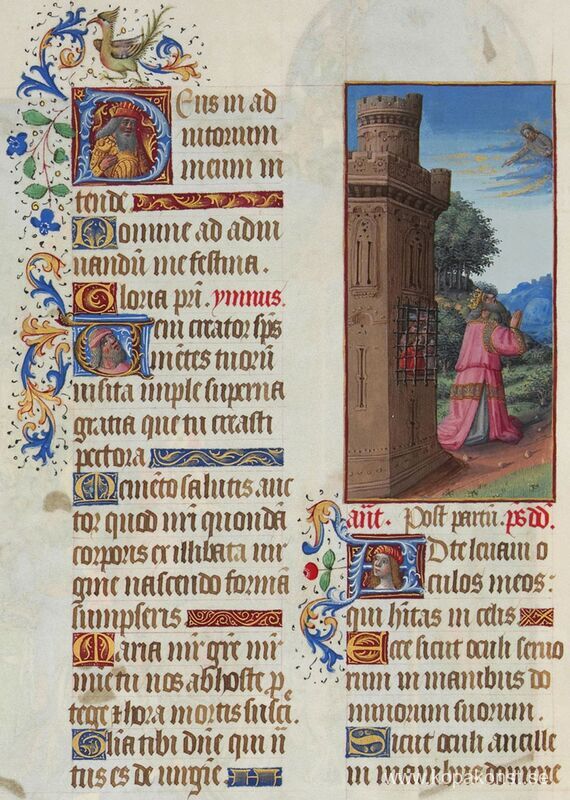 Deus in ad
iutorium
meum in
tende
Domine ad adiu
uandū me festina.
Gloria pri. ymnus.
Veni creator sp̄s
mētes tuorū
uisita imple superna
gratia que tu creasti
pectora
Memēto salutis auc
tor quod nr̄i quondā
corporis ex illibata uir
gine nascendo formā
sumpseris
Maria mr̄ gr̄e mr̄
mīe tu nos ab hoste p̄
tege & hora mortis susci.e
Gl̄ia tibi dn̄e qui n̄
tus es de uirgīe
an̄t. Post partū. ps dd̄.
Ad te leuaui o
culos meos:
qui h̄itas in celis
Ecce sicut oculi seruo
rum in manibus do
minorum suorum.
Sicut oculi ancille
in manibus domine
www.kopakonst.se